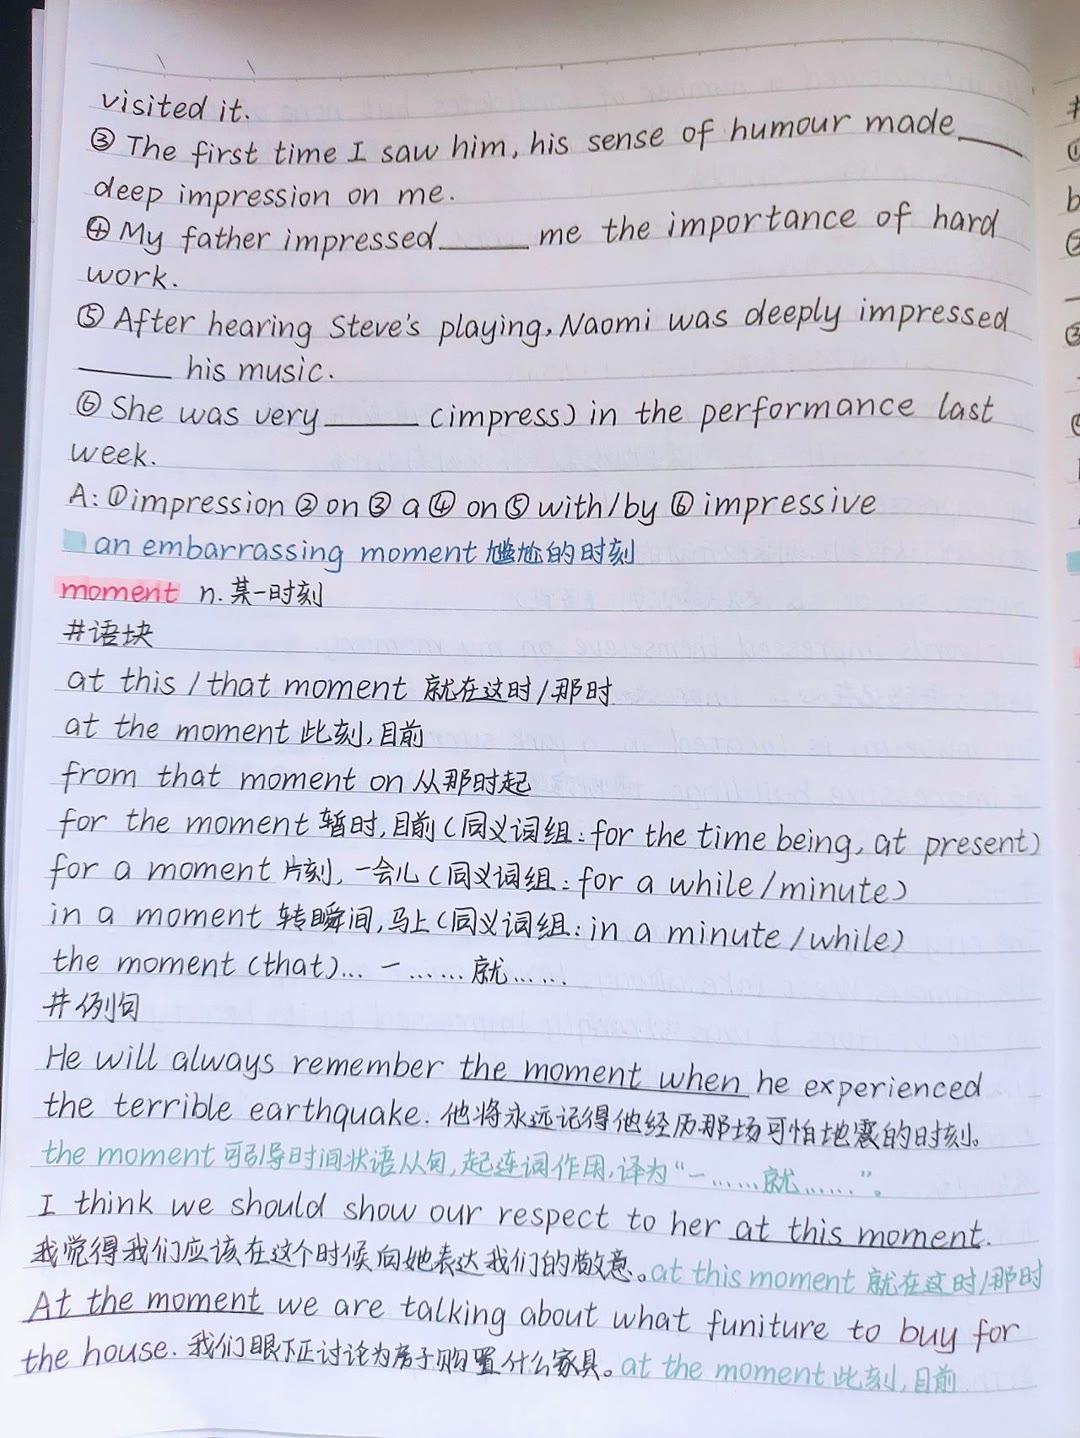 visited it.
③ The first time I saw him, his sense of humour made____
deep impression on me.
④ My father impressed____ me the importance of hard
work.
⑤ After hearing Steve's playing, Naomi was deeply impressed
____ his music.
⑥ She was very____ (impress) in the performance last
week.
A: ①impression ② on ③ a ④ on ⑤ with/by ⑥ impressive
an embarrassing moment 尴尬的时刻
moment n. 某一时刻
#语块
at this / that moment 就在这时/那时
at the moment 此刻,目前
from that moment on 从那时起
for the moment 暂时,目前(同义词组:for the time being, at present)
for a moment 片刻,一会儿(同义词组:for a while/minute)
in a moment 转瞬间,马上(同义词组:in a minute/while)
the moment (that)... 一……就……
#例句
He will always remember the moment when he experienced
the terrible earthquake. 他将永远记得他经历那场可怕地震的时刻。
the moment 可引导时间状语从句,起连词作用,译为“一……就……”。
I think we should show our respect to her at this moment.
我觉得我们应该在这个时候向她表达我们的敬意。at this moment 就在这时/那时
At the moment we are talking about what funiture to buy for
the house. 我们眼下正讨论为房子购置什么家具。at the moment 此刻,目前